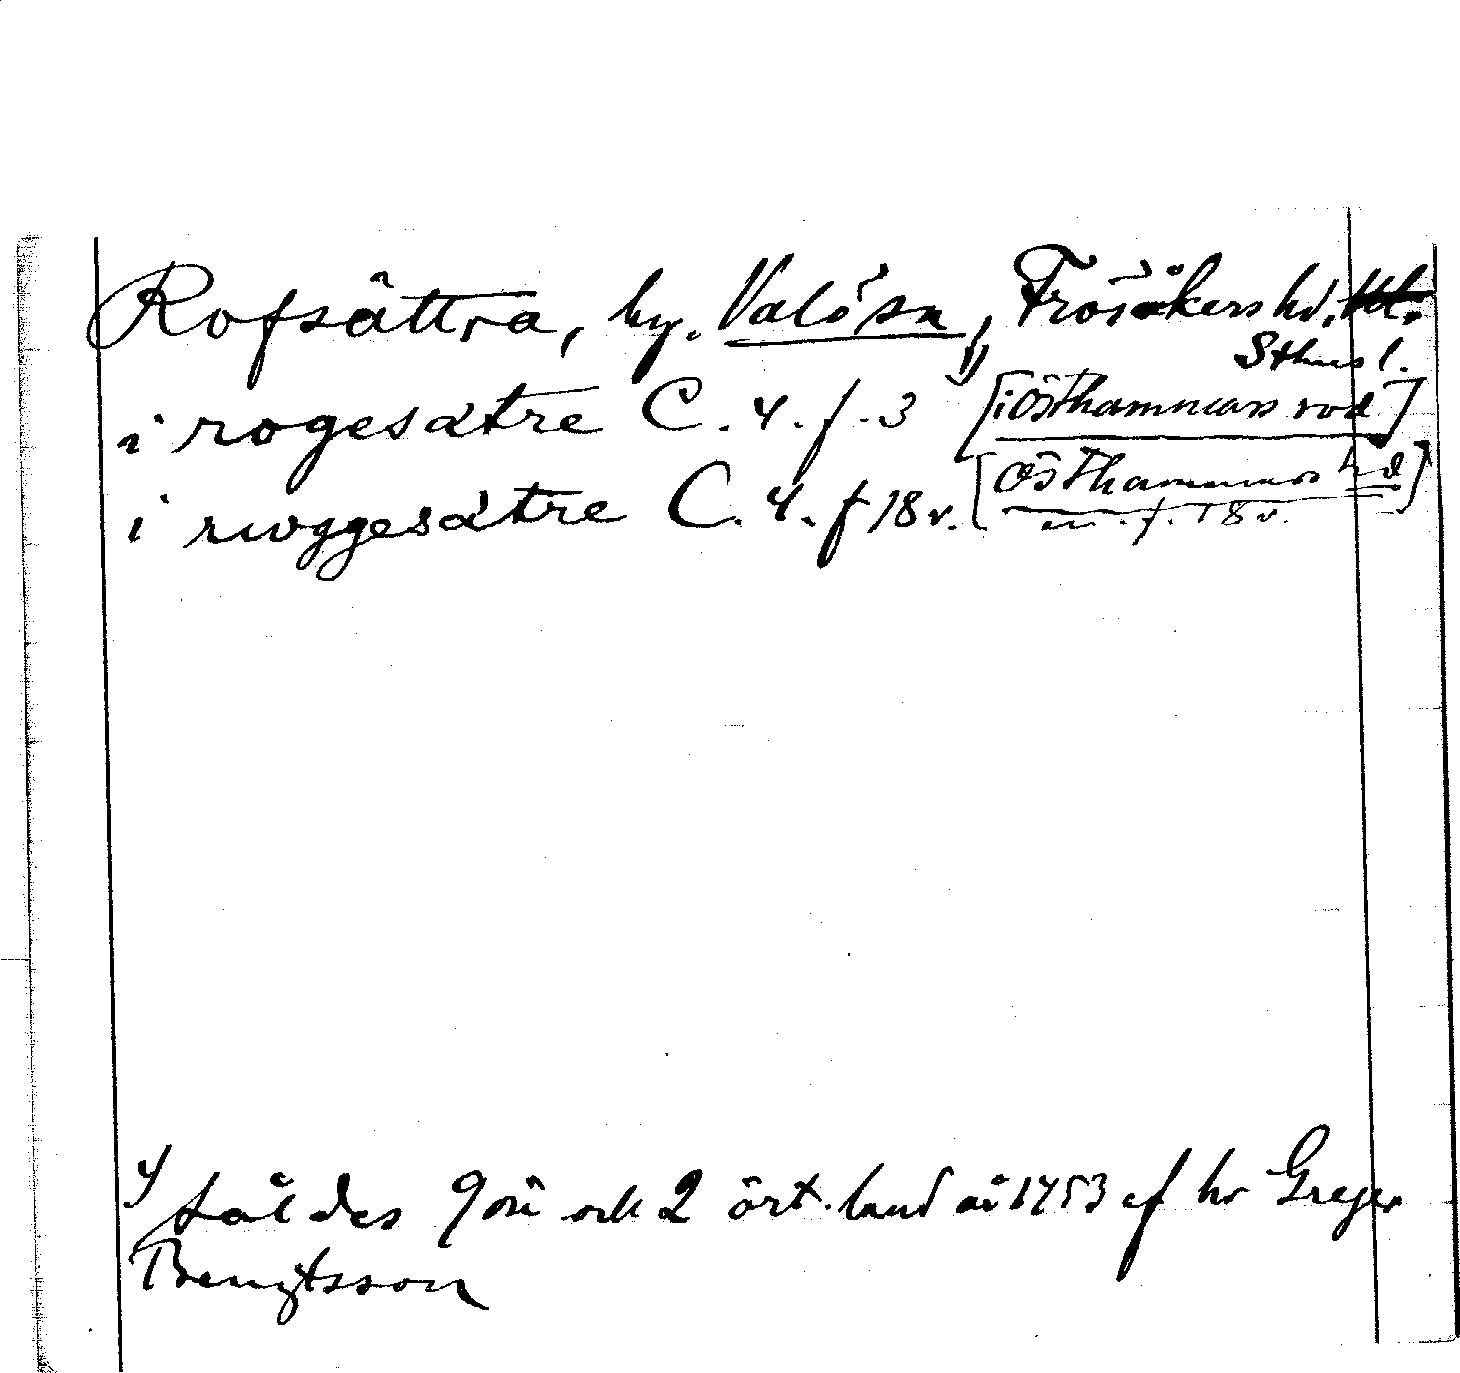 Rofsättra, by. Valö sn, Frösåkers hd. Upl.
Sthms l.
i rogesätre C. 4. f. 3 [i Østhammars rod]
i rwggesätre C. 4. f 18 v. [Østhammars hd]
m. f. 18 v.
såldes 9 öre och 2 ört. land av 1453 af hr Greger
Bengtsson